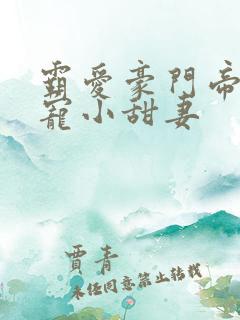 霸愛豪門帝
寵小甜妻
賈青
未经同意禁止转载